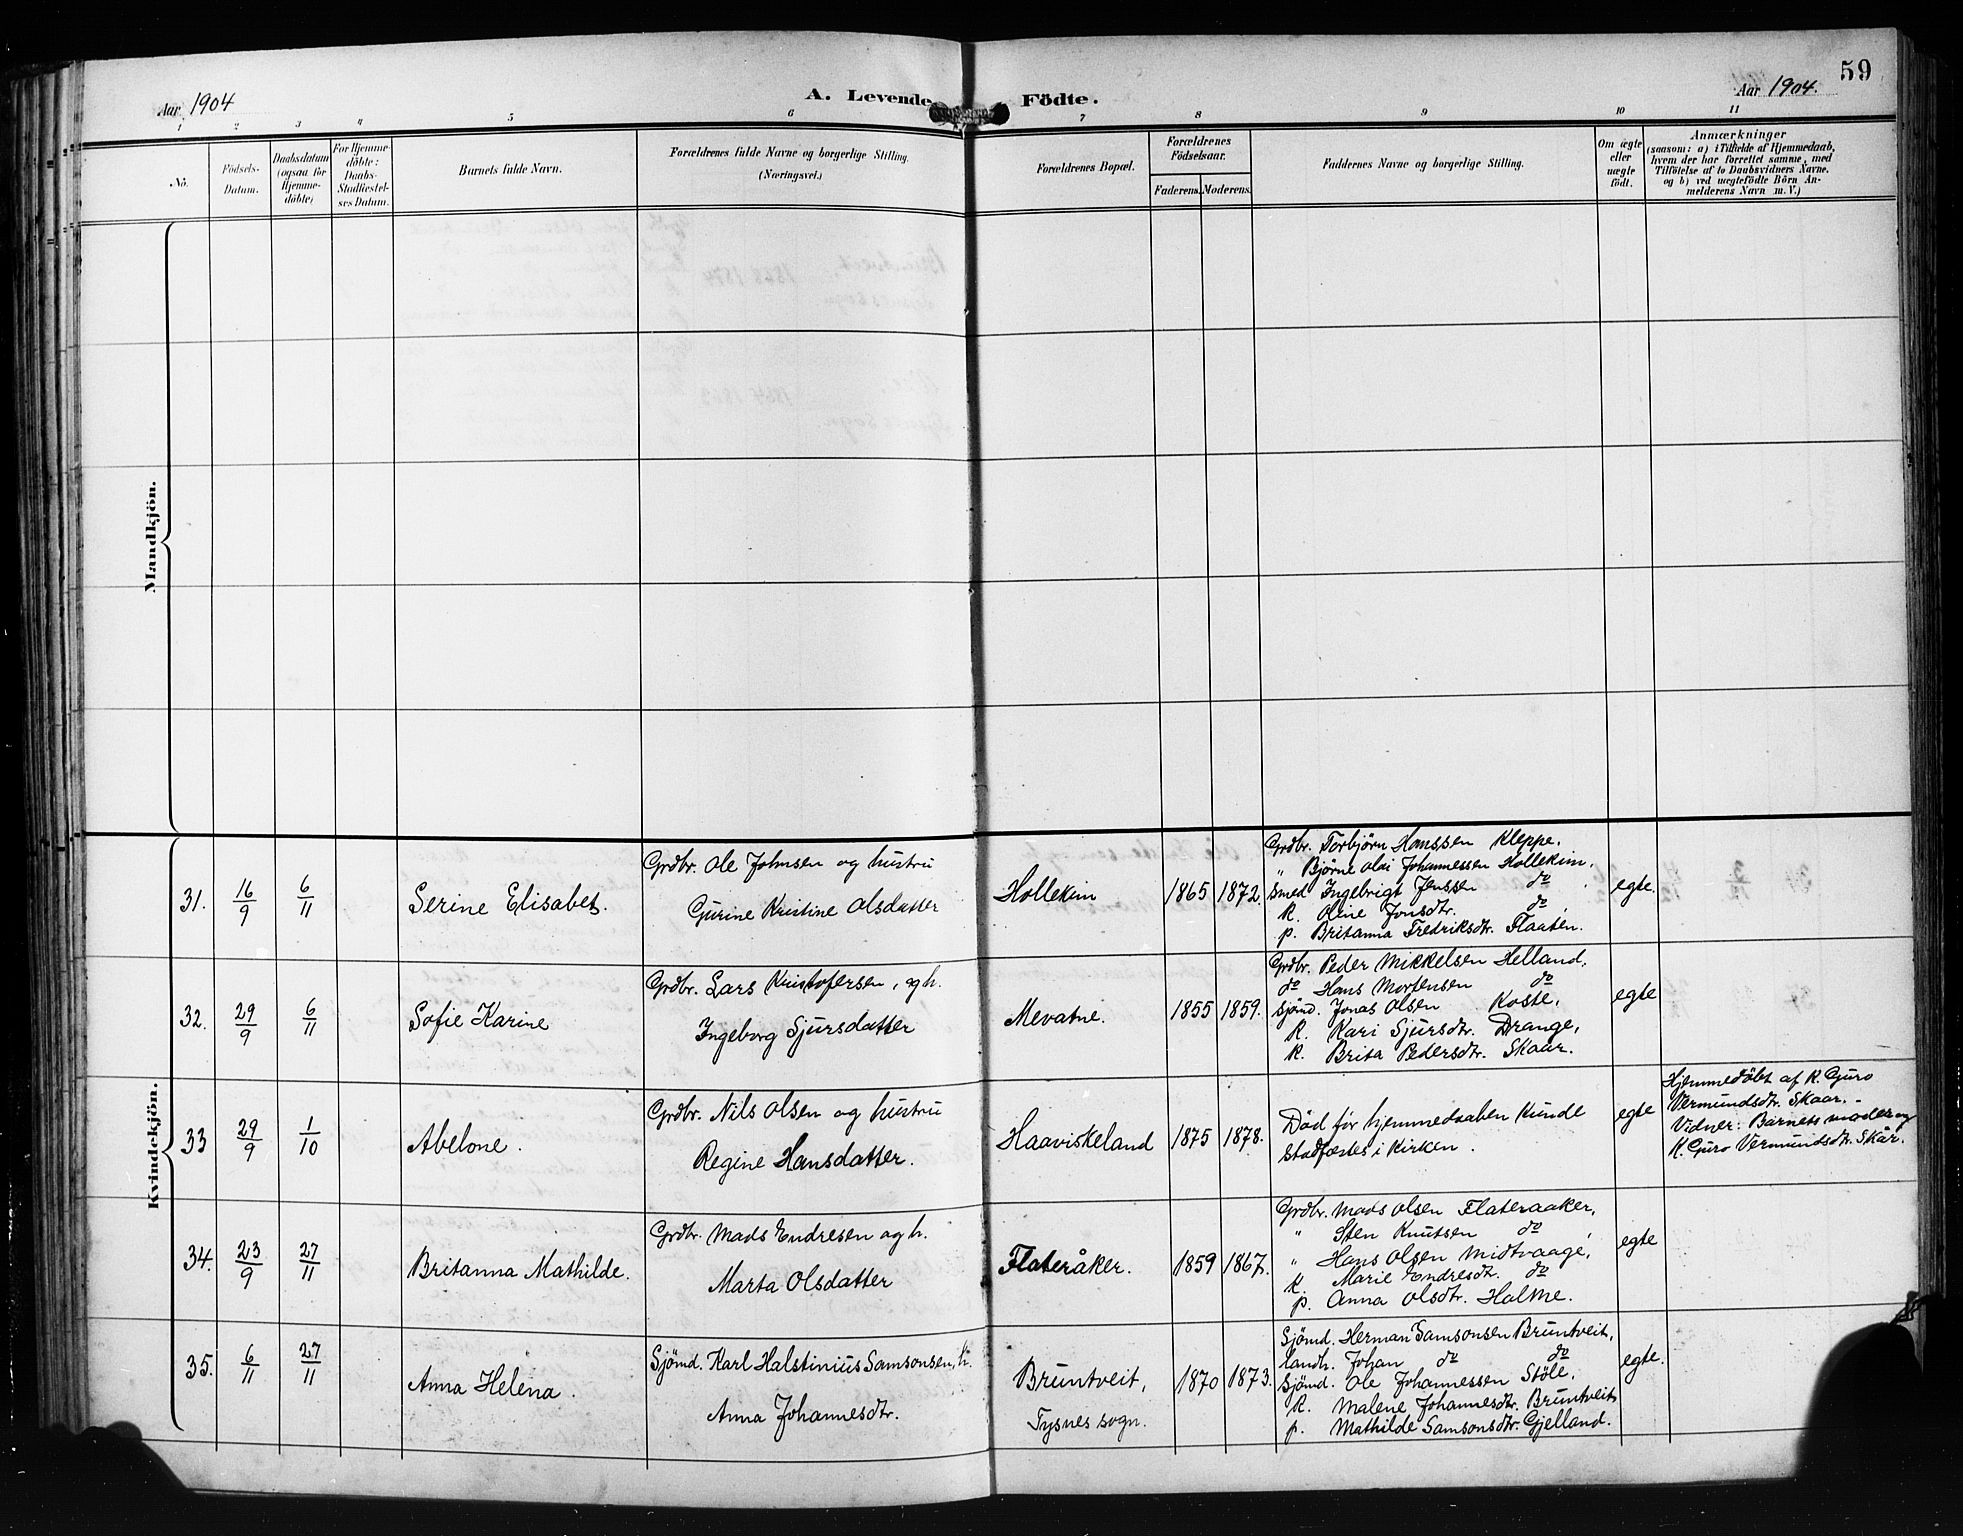 59
Aar 1904
A. Levende Födte.
Aar 1904.
1 2 3 4 5 6 7 8 9 10 11
No.
Födsels-
Datum.
Daabsdatum
(ogsaa for
Hjemme-
döbte)
For Hjemme-
döbte:
Daabs-
Stadfæstel-
ses Datum.
Barnets fulde Navn.
Forældrenes fulde Navne og borgerlige Stilling.
(Næringsvei.)
Forældrenes Bopæl.
Forældrenes
Födselsaar.
Faderens. Moderens.
Faddernes Navne og borgerlige Stilling.
Om ægte
eller
uægte
födt.
Anmærkninger
(saasom: a) i Tilfælde af Hjemmedaab,
hvem der har forrettet samme, med
Tilföielse af to Daabsvidners Navne.
og b) ved uægtefödte Börn An-
melderens Navn m. V.)
Mandkjön.
Kvindekjön.
31.
16/9
6/11
Serine Elisabet.
Grdbr. Ole Johnsen og hustru
Gurine Kristine Olsdatter
Hollekim
1865
1872.
Grdbr. Torbjörn Hanssen Kleppe,
" Bjørne Johannessen Hollekim,
Smed Ingebrigt Jenssen do
K. Oline Jonsdtr. do
p. Britanna Fredriksdtr. Flaaten.
egte.
32.
29/9
6/11
Sofie Karine
Grdbr. Lars Kristofersen, og h.
Ingeborg Sjursdatter
Mevatne.
1855
1859.
Grdbr. Peder Mikkelsen Helland,
do Hans Mortensen do
Sjömd. Jonas Olsen Koste,
K. Kari Sjursdtr. Drange,
K. Brita Pedersdtr. Skaar.
egte
33
29/9
1/10
Abelone.
Grdbr. Nils Olsen og hustru
Regine Hansdatter.
Haaviskeland
1875
1878.
Död för hjemmedaaben kunde
stadfæstes i kirken.
egte
Hjemmedöbt af K. Guro
Vermundsdtr. Skaar. -
Vidner: Barnets moder og
K. Guro Vermundsdtr. Skår.
34.
23/9
27/11
Britanna Mathilde.
Grdbr. Mads Endresen og h.
Marta Olsdatter
Flateråker.
1859
1867.
Grdbr. Mads Olsen Flateraaker,
" Sten Knutsen do,
" Hans Olsen Midtvaage,
K. Marie Endresdtr. do
p. Anna Olsdtr. Holme.
egte
35.
6/11
27/11
Anna Helena.
Sjömd. Karl Halstinius Samsonsen, h.
Anna Johannesdtr.
Bruntveit,
Tysnes sogn.
1870
1873.
Sjömd. Herman Samsonsen Bruntveit,
landh. Johan do do
Sjömd. Ole Johannessen Stöle,
K. Malene Johannesdtr. Bruntveit
p. Mathilde Samsonsdtr. Gjelland.
egte.